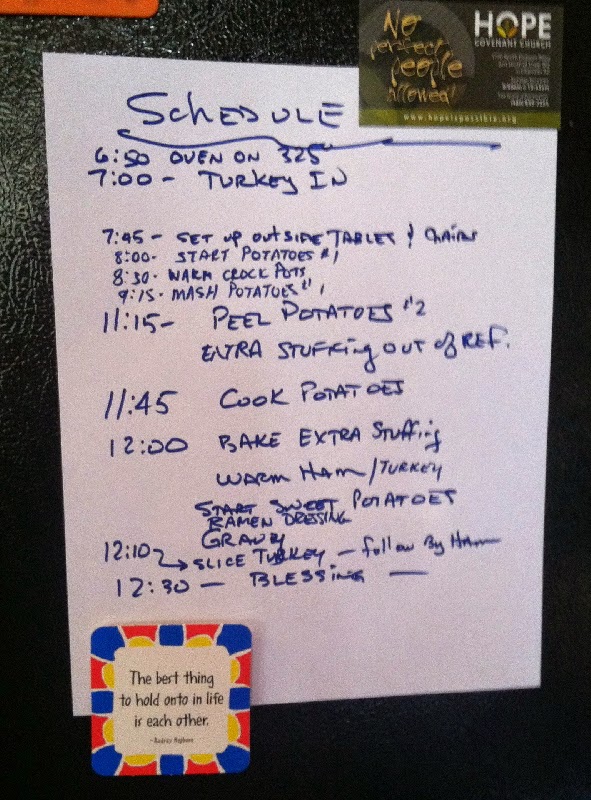 No
perfect
people
allowed!
HOPE
COVENANT CHURCH
www.hopeispossible.org
SCHEDULE
6:50 OVEN ON 325°
7:00 - TURKEY IN
7:45 - SET UP OUTSIDE TABLES & CHAIRS
8:00 - START POTATOES #1
8:30 - WARM CROCK POTS
9:15 - MASH POTATOES #1
11:15 - PEEL POTATOES #2
EXTRA STUFFING OUT OF REF.
11:45 COOK POTATOES
12:00 BAKE EXTRA STUFFING
WARM HAM/TURKEY
START SWEET POTATOES
RAMEN DRESSING
GRAVY
12:10 → SLICE TURKEY - FOLLOW BY HAM
12:30 - BLESSING -
The best thing
to hold onto in life
is each other.
-Audrey Hepburn